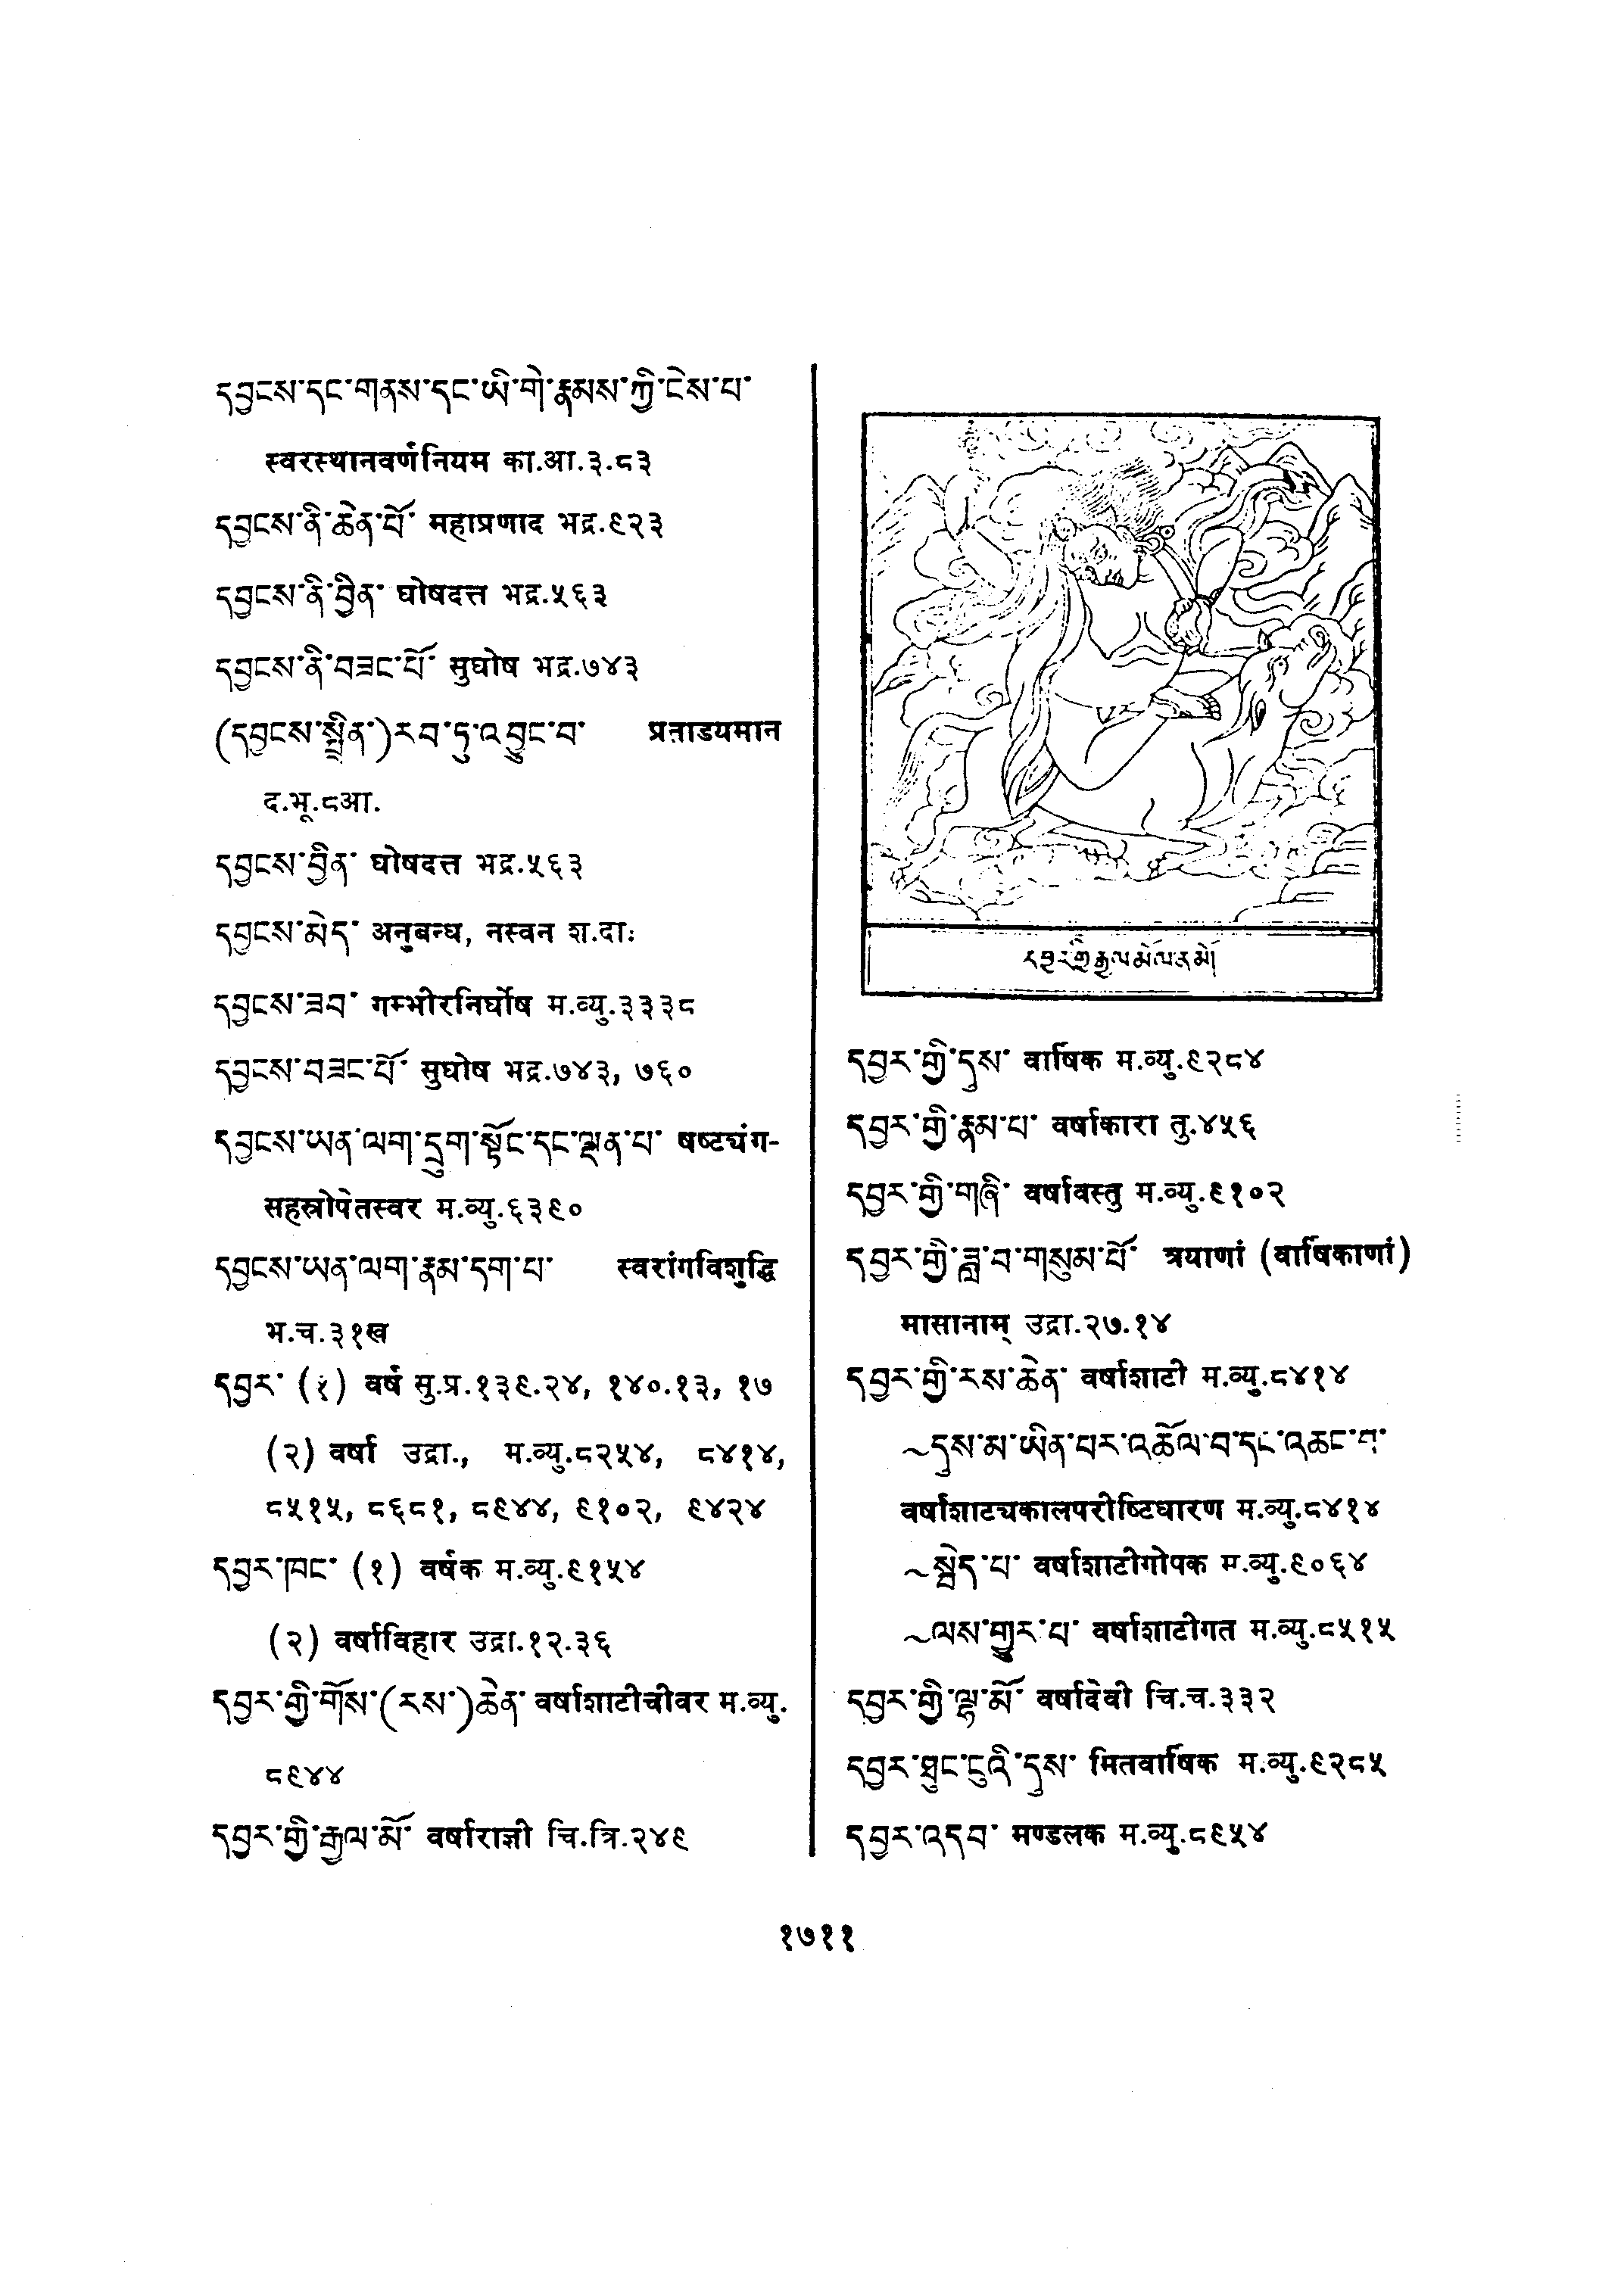 དབྱངས་དང་གནས་དང་ཡི་གེ་རྣམས་ཀྱི་ངེས་པ་
स्वरस्थानवर्णनियम का.आ.३.८३
དབྱངས་ནི་ཆེན་པོ་ महाप्रणाद भद्र.९२३
དབྱངས་ནི་བྱིན་ घोषदत्त भद्र.५६३
དབྱངས་ནི་བཟང་པོ་ सुघोष भद्र.७४३
(དབྱངས་སྤྲིན་)རབ་ཏུ་འབྱུང་བ་ प्रताडयमान
द.भू.८आ.
དབྱངས་བྱིན་ घोषदत्त भद्र.५६३
དབྱངས་མེད་ अनुबन्ध, नस्वन श.दा:
དབྱངས་ཟབ་ गम्भीरनिर्घोष म.व्यु.३३३८
དབྱངས་བཟང་པོ་ सुघोष भद्र.७४३, ७६०
དབྱངས་ཡན་ལག་དྲུག་སྟོང་དང་ལྡན་པ་ षष्टचंग-
सहस्रोपेतस्वर म.व्यु.६३९०
དབྱངས་ཡན་ལག་རྣམ་དག་པ་ स्वरांगविशुद्धि
भ.च.३१ख
དབྱར་ (१) वर्ष सु.प्र.१३९.२४, १४०.१३, १७
(२) वर्षा उद्रा., म.व्यु.८२५४, ८४१४,
८५१५, ८६८१, ८९४४, ९१०२, ९४२४
དབྱར་ཁང་ (१) वर्षक म.व्यु.९१५४
(२) वर्षाविहार उद्रा.१२.३६
དབྱར་གྱི་གོས་(རས་)ཆེན་ वर्षाशाटीचीवर म.व्यु.
८९४४
དབྱར་གྱི་རྒྱལ་མོ་ वर्षाराज्ञी चि.त्रि.२४९
དབྱར་གྱི་རྒྱལ་མོ་ལ་ན་མོ།
དབྱར་གྱི་དུས་ वार्षिक म.व्यु.९२८४
དབྱར་གྱི་རྣམ་པ་ वर्षाकारा तु.४५६
དབྱར་གྱི་གཞི་ वर्षावस्तु म.व्यु.९१०२
དབྱར་གྱི་ཟླ་བ་གསུམ་པོ་ त्रयाणां (वार्षिकाणां)
मासानाम् उद्रा.२७.१४
དབྱར་གྱི་རས་ཆེན་ वर्षाशाटी म.व्यु.८४१४
~དུས་མ་ཡིན་པར་འཚོལ་བ་དང་འཆང་བ་
वर्षाशाटचकालपरीष्टिधारण म.व्यु.८४१४
~སྦེད་པ་ वर्षाशाटीगोपक म.व्यु.९०६४
~ལས་གྱུར་པ་ वर्षाशाटीगत म.व्यु.८५१५
དབྱར་གྱི་ལྷ་མོ་ वर्षादेवी चि.च.३३२
དབྱར་ཐུང་ངུའི་དུས་ मितवार्षिक म.व्यु.९२८५
དབྱར་འདབ་ मण्डलक म.व्यु.८९५४
१७११